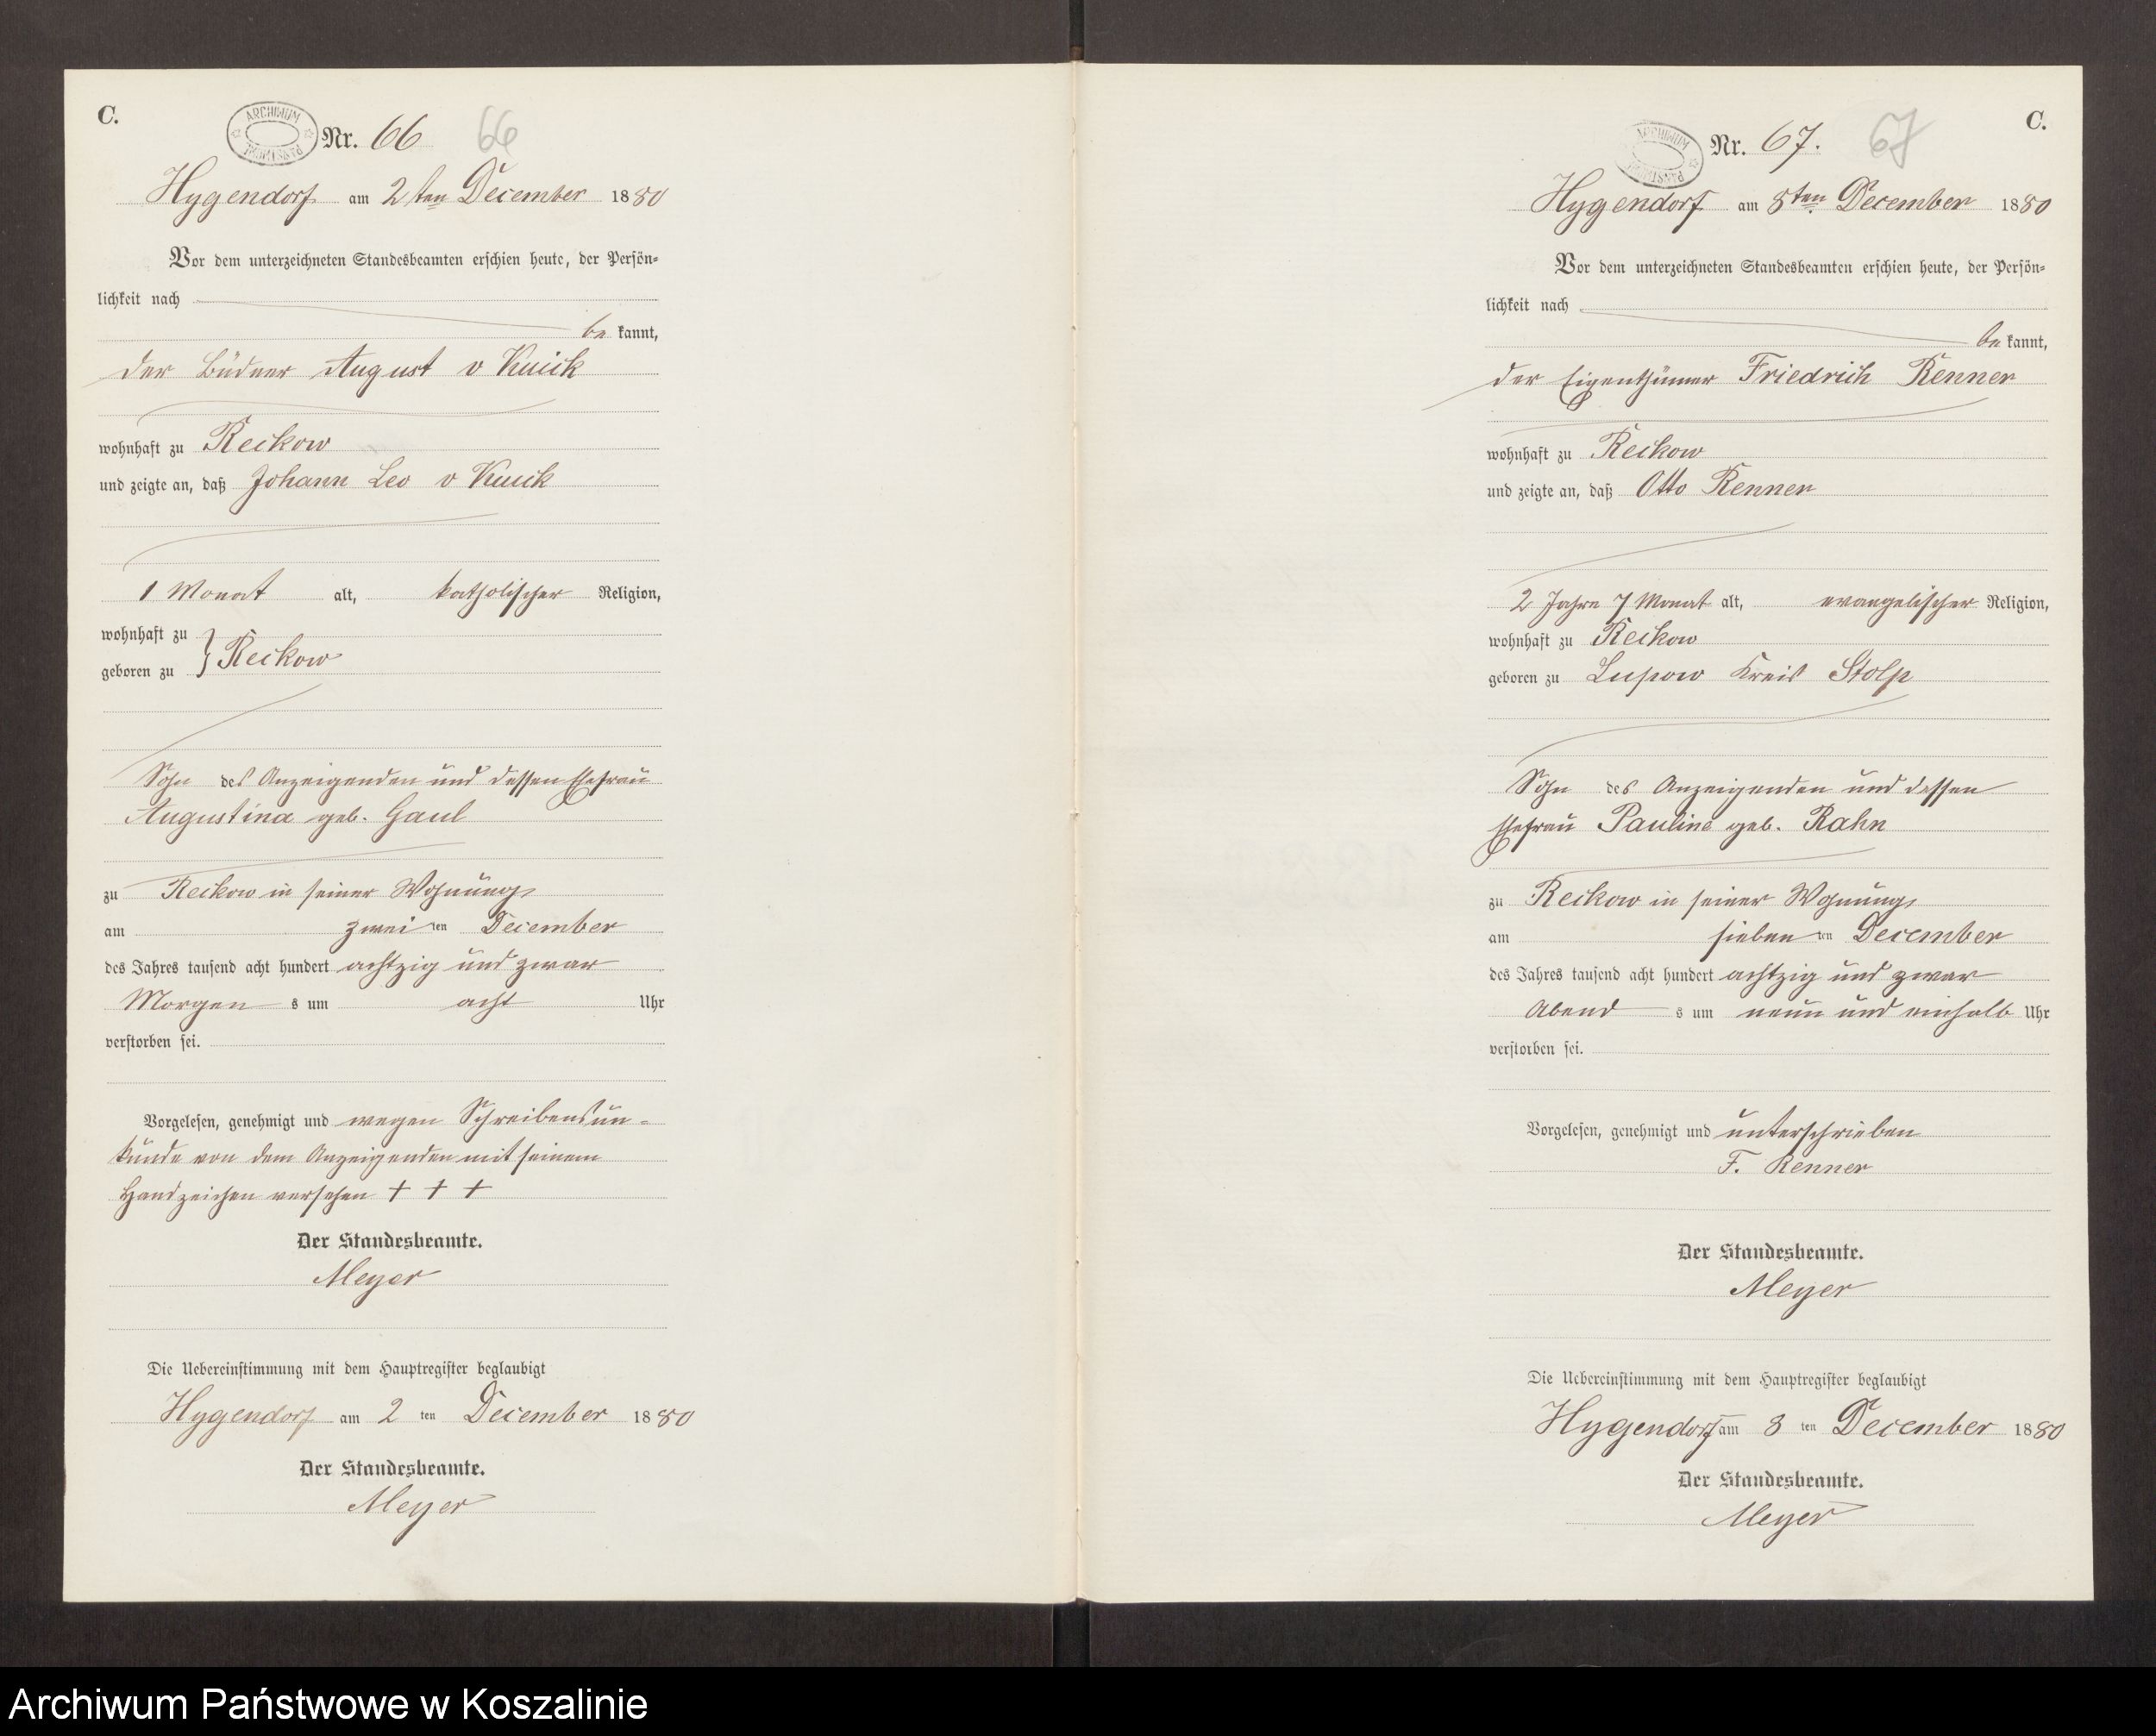 C.
ARCHIWUM PAŃSTWOWE
Nr. 66 66
Hygendorf am 2ten December 1880
Vor dem unterzeichneten Standesbeamten erschien heute, der Persön-
lichkeit nach
be kannt,
der Büdner August v
wohnhaft zu Reckow
und zeigte an, daß Johann Leo v
1 Monat alt, katholischer Religion,
wohnhaft zu
geboren zu } Reckow
Sohn des Anzeigenden und dessen Ehefrau
Augustina geb. Gaul
zu Reckow in seiner Wohnung,
am zwei ten December
des Jahres tausend acht hundert achtzig und zwar
Morgen s um acht Uhr
verstorben sei.
Vorgelesen, genehmigt und wegen Schreibensun-
kunde von dem Anzeigenden mit seinem
Handzeichen versehen + + +
Der Standesbeamte.
Meyer
Die Uebereinstimmung mit dem Hauptregister beglaubigt
Hygendorf am 2 ten December 1880
Der Standesbeamte.
Meyer
C.
ARCHIWUM PAŃSTWOWE
Nr. 67. 67
Hygendorf am 8ten December 1880
Vor dem unterzeichneten Standesbeamten erschien heute, der Persön-
lichkeit nach
be kannt,
der Eigenthümer Friedrich Renner
wohnhaft zu Reckow
und zeigte an, daß Otto Renner
2 Jahre 7 Monat alt, evangelischer Religion,
wohnhaft zu Reckow
geboren zu Lupow Kreis Stolp
Sohn des Anzeigenden und dessen
Ehefrau Pauline geb. Rahn
zu Reckow in seiner Wohnung,
am sieben ten December
des Jahres tausend acht hundert achtzig und zwar
Abend s um neun und einhalb Uhr
verstorben sei.
Vorgelesen, genehmigt und unterschrieben
F. Renner
Der Standesbeamte.
Meyer
Die Uebereinstimmung mit dem Hauptregister beglaubigt
Hygendorf am 8 ten December 1880
Der Standesbeamte.
Meyer
Archiwum Państwowe w Koszalinie